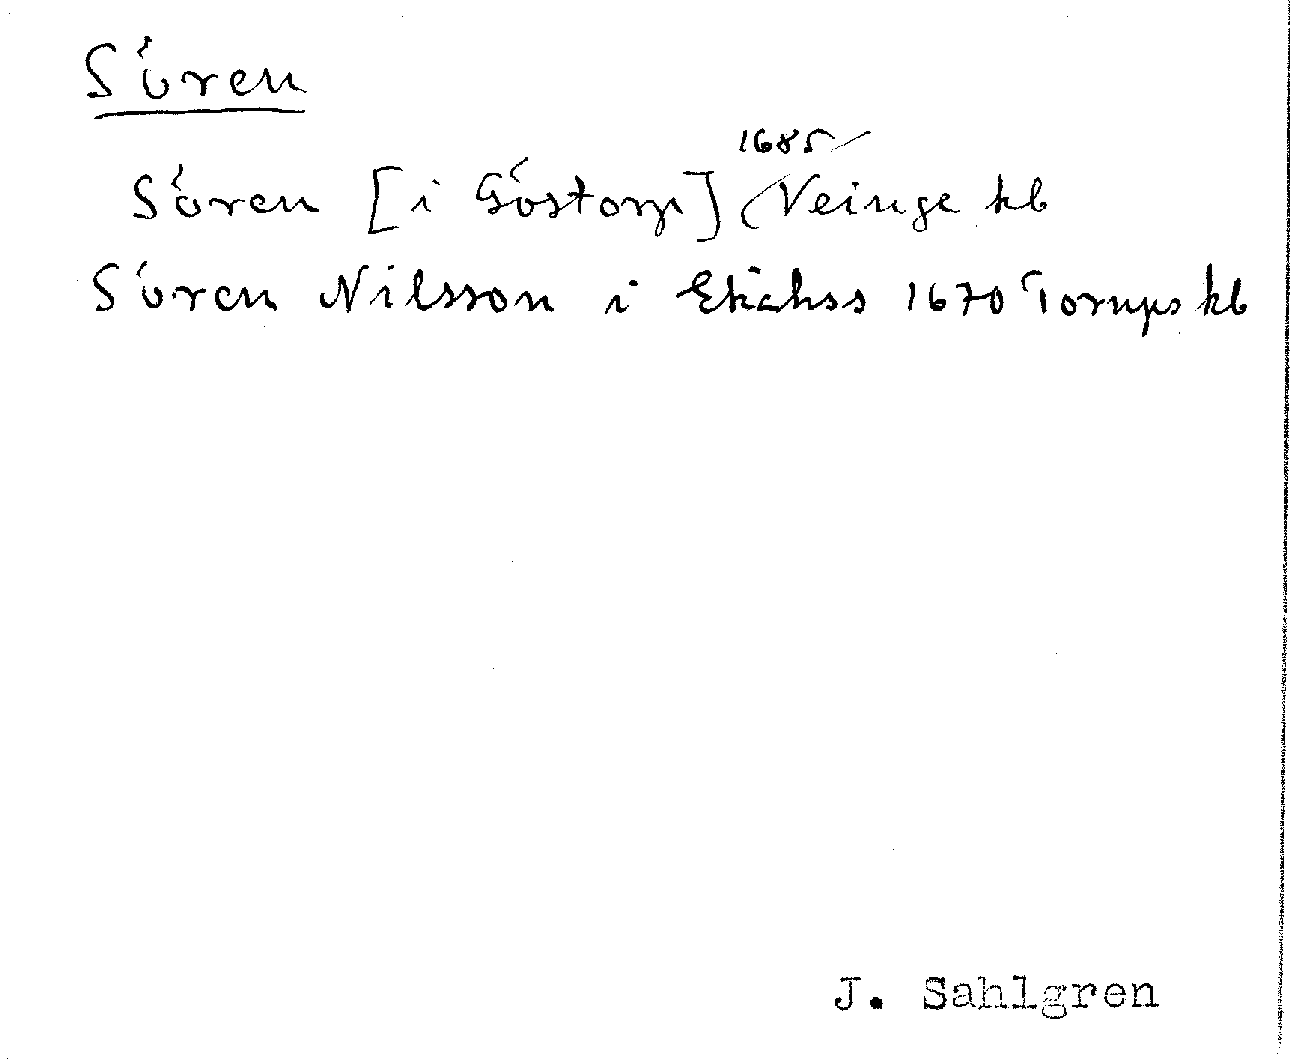 Sören
Sören [i Göstorp] 1685 Veinge kb
Sören Nilsson i Ekähss 1670 Torups kb
J. Sahlgren